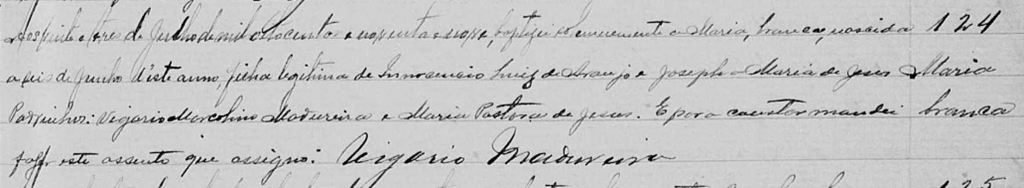 Aos vinte e tres de Julho de mil oitocentos e noventa e nove, baptizei solemnemente a Maria, branca, nascida 124
a seis de Junho d'este anno, filha legitima de Innocencio Luiz de Araujo e Josepha Maria de Jesus Maria
Padrinhos: Vigario Marcolino Madureira e Maria Pastora de Jesus. E para constar mandei branca
este assento que assigno: Vigario Madureira
125